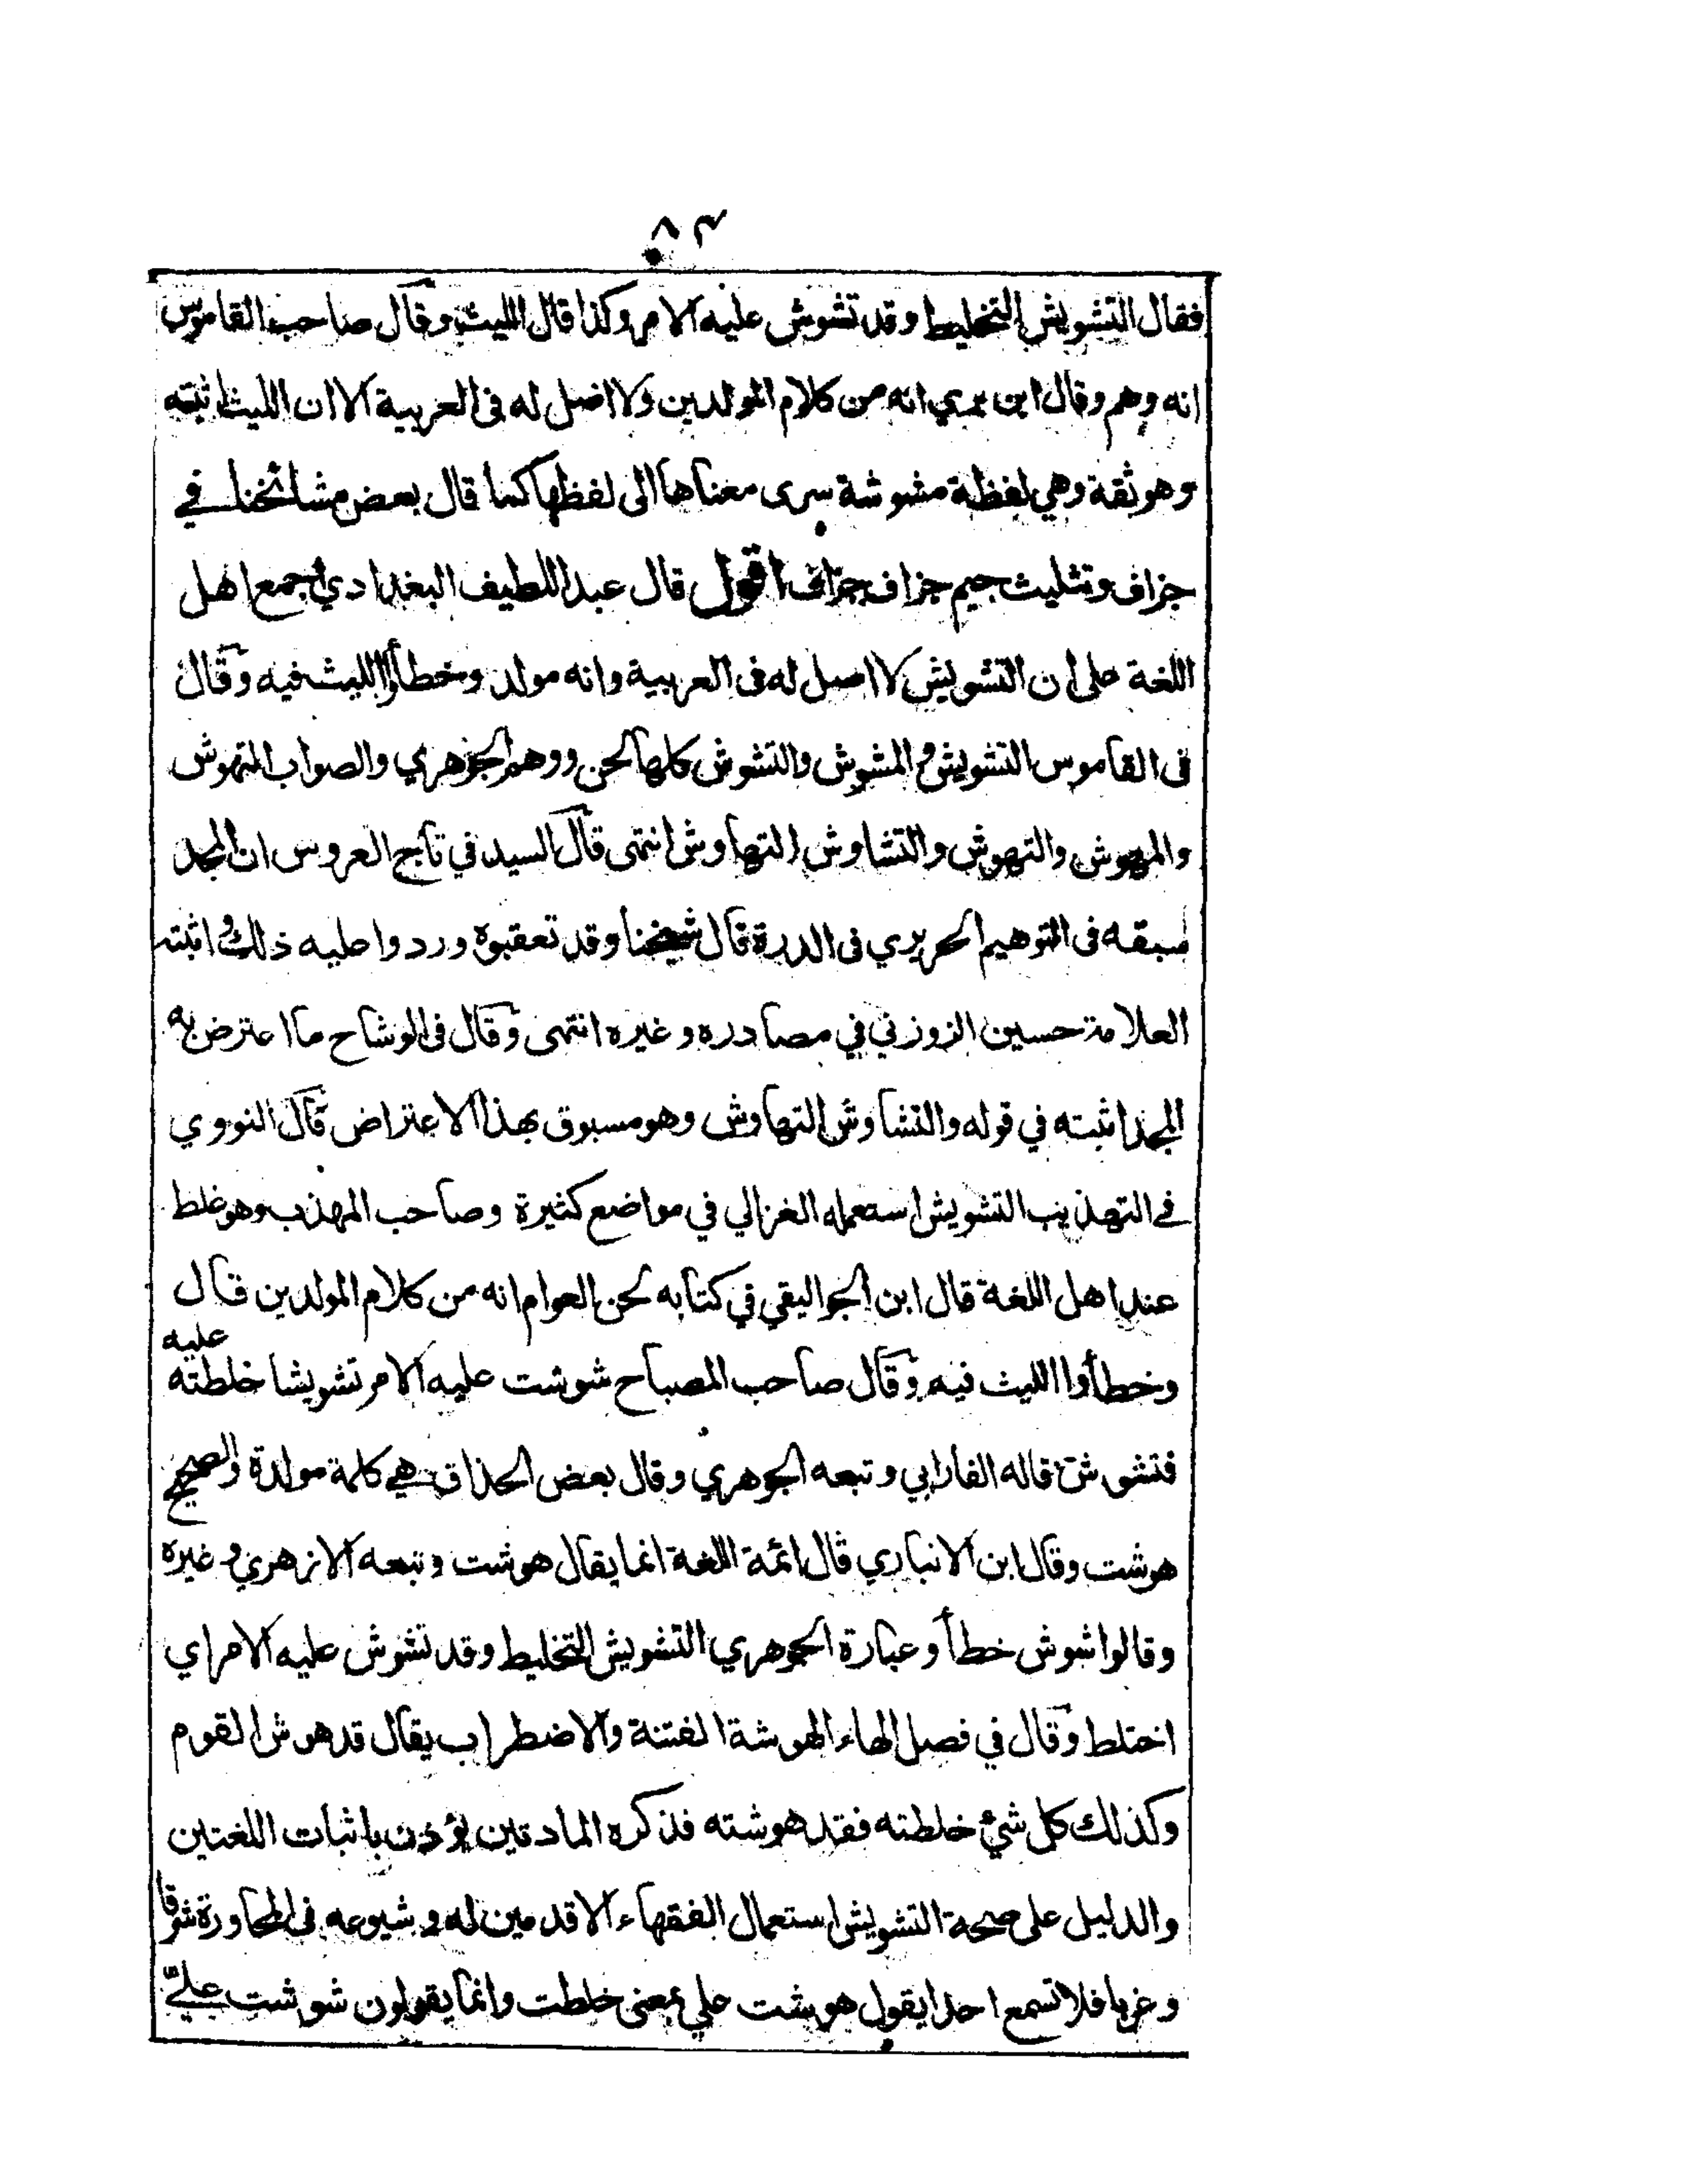 ٨٣
فقال التشويش التخليط وقد تشوش عليه الامر وكذا قال الليث وقال صاحب القاموس
انه وهم وقال ابن بري انه من كلام المولدين ولا اصل له فى العربية الا ان الليث اثبته
وهو ثقة وهي لفظة مشوشة سرى معناها الى لفظها كما قال بعض مشائخنا في
جزاف وتثليث جيم جزاف جزاف اقول قال عبد اللطيف البغدادي اجمع اهل
اللغة على ان التشويش لا اصل له فى العربية وانه مولد وخطأوا الليث فيه وقال
فى القاموس التشويش والمشوش والتشوش كلها لحن ووهم الجوهري والصواب التهوش
والمهوش والتهوش والتشاوش التهاوش انتهى قال السيد في تاج العروس ان المجد
سبقه فى التوهيم الحريري فى الدرة قال شيخنا وقد تعقبوه وردوا عليه ذلك واثبته
العلامة حسين الزوزني في مصادره وغيره انتهى وقال فى الوشاح ما اعترض به
المجد اثبته في قوله والتشاوش التهاوش وهو مسبوق بهذا الاعتراض قال النووي
في التهذيب التشويش استعمله الغزالي في مواضع كثيرة وصاحب المهذب وهو غلط
عند اهل اللغة قال ابن الجواليقي في كتابه لحن العوام انه من كلام المولدين قال
وخطأوا الليث فيه وقال صاحب المصباح شوشت عليه الامر تشويشا خلطته عليه
فتشوش قاله الفارابي وتبعه الجوهري وقال بعض الحذاق هي كلمة مولدة والصحيح
هوشت وقال ابن الانباري قال ائمة اللغة انما يقال هوشت وتبعه الازهري وغيره
وقالوا شوش خطأ وعبارة الجوهري التشويش التخليط وقد تشوش عليه الامر اي
اختلط وقال في فصل الهاء الهوشة الفتنة والاضطراب يقال قد هوش القوم
وكذلك كل شئ خلطته فقد هوشته فذكره المادتين يؤذن باثبات اللغتين
والدليل على صحة التشويش استعمال الفقهاء الاقدمين له وشيوعه فى المحاورة شرقا
وغربا فلا تسمع احدا يقول هوشت علي بمعنى خلطت وانما يقولون شوشت عليّ